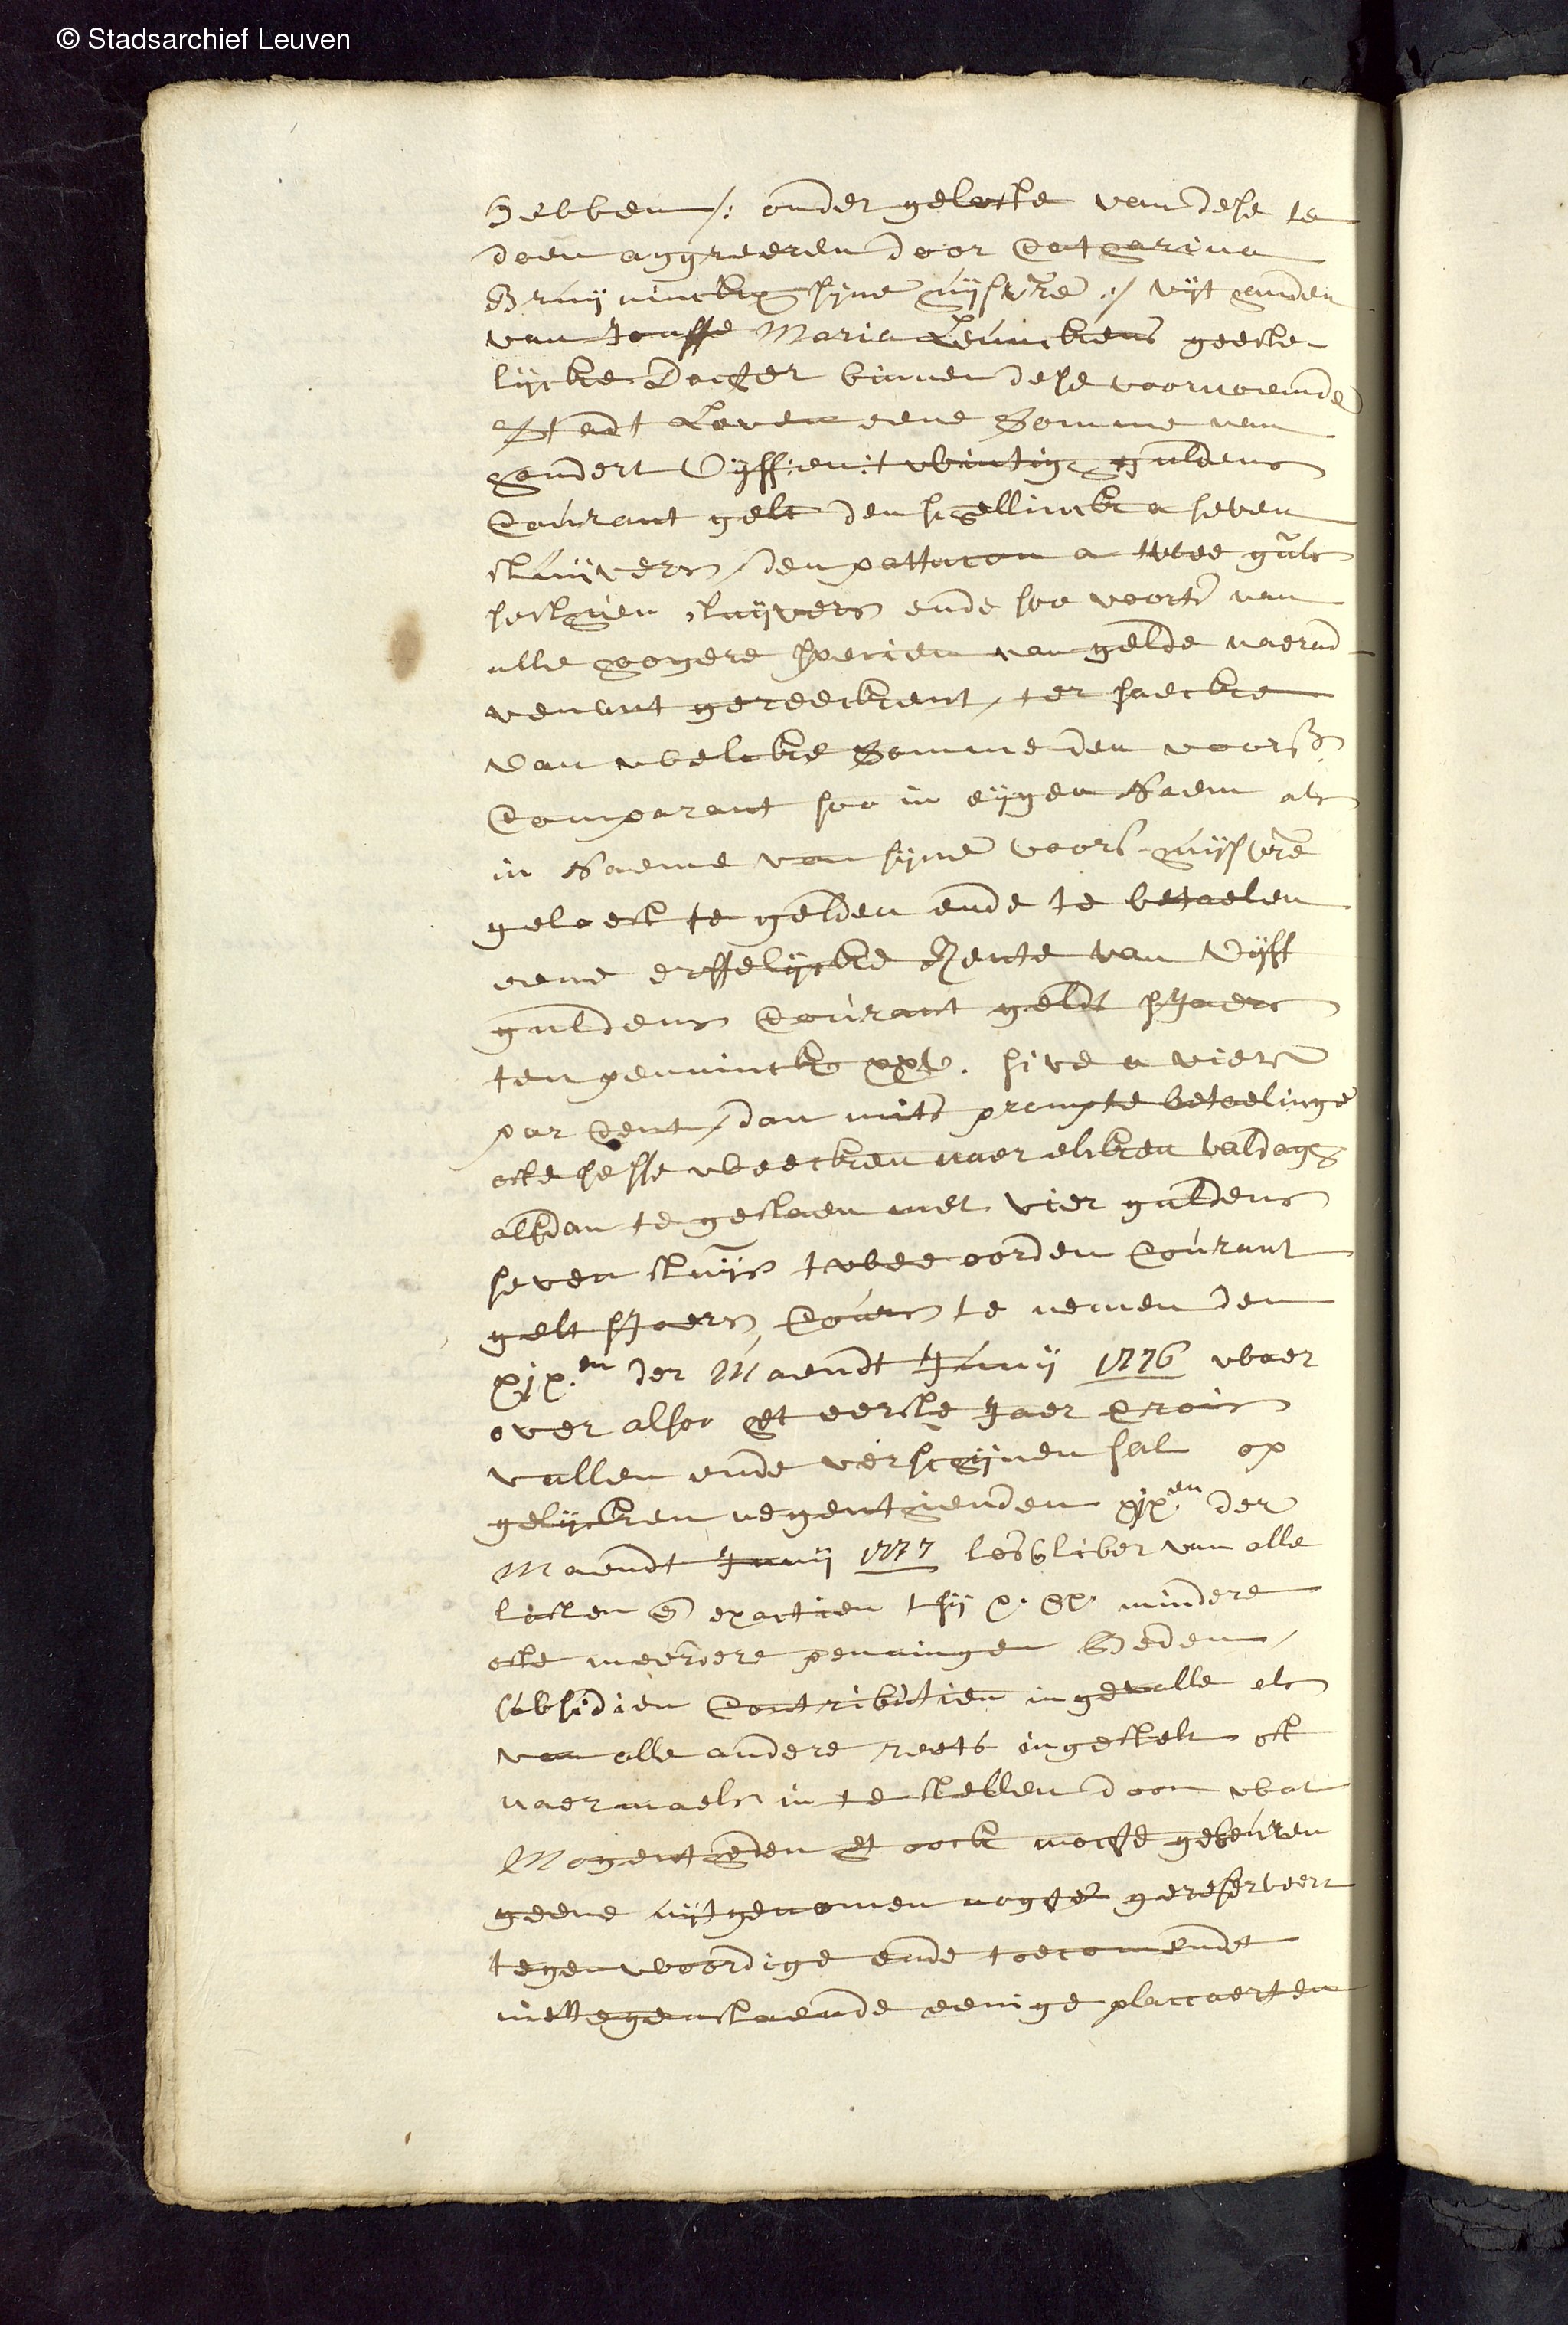 © Stadsarchief Leuven
hebben /: onder gelofte van dese te
doen aggreeren door Catharina
Bruyninckx syne huysvre :/ uyt handen
van Jouffe Maria Leunckens geeste-
lycke Dochter binnen dese voornoemde
Stadt Loven eene Somme van
hondert Vyff:en:t wbintig guldens
Courant gelt den schellinck a seven
stuyvers, den pattacon a twee guls
sesthien stuyvers ende soo voorts van
alle hoogere specien van gelde naerad-
venant gereeckent, ter saecke
van wbelcke Somme den voors.
Comparant soo in eygen Naem als
in Naeme van syne voors. huysvre
geloeft te gelden ende te betaelen
eene erffelycke Rente van Vyff
guldens Courant geldt sJaers
ten penninck xxv. sive a viere
par Cent, dan mits prompte betaelinge
ofte sesse wbeecken naer elcken valdagh
alsdan te gestaen met vier guldens
seven stuyvs twbee oorden Courant
gelt sJaers, Cours te nemen den
xix.en der Maendt Juny 1776 wbaer
over alsoo het eerste Jaer Crois
vallen ende verschynen sal op
gelycken negenthienden xix.en der
Maendt Juny 1777 los & liber van alle
lasten en exactien tsy x. xx. mindere
ofte meerdere penningen Beden,
subsidien Contributien ingevalle als
van alle andere reets ingestelt oft
naermaels in te stellen door wbat
Mogentheden het oock mochte gebeuren
geene uytgenomen nochte gereserveert
tegenwboordige ende toecomende
niettegenstaende eenige placcaerten